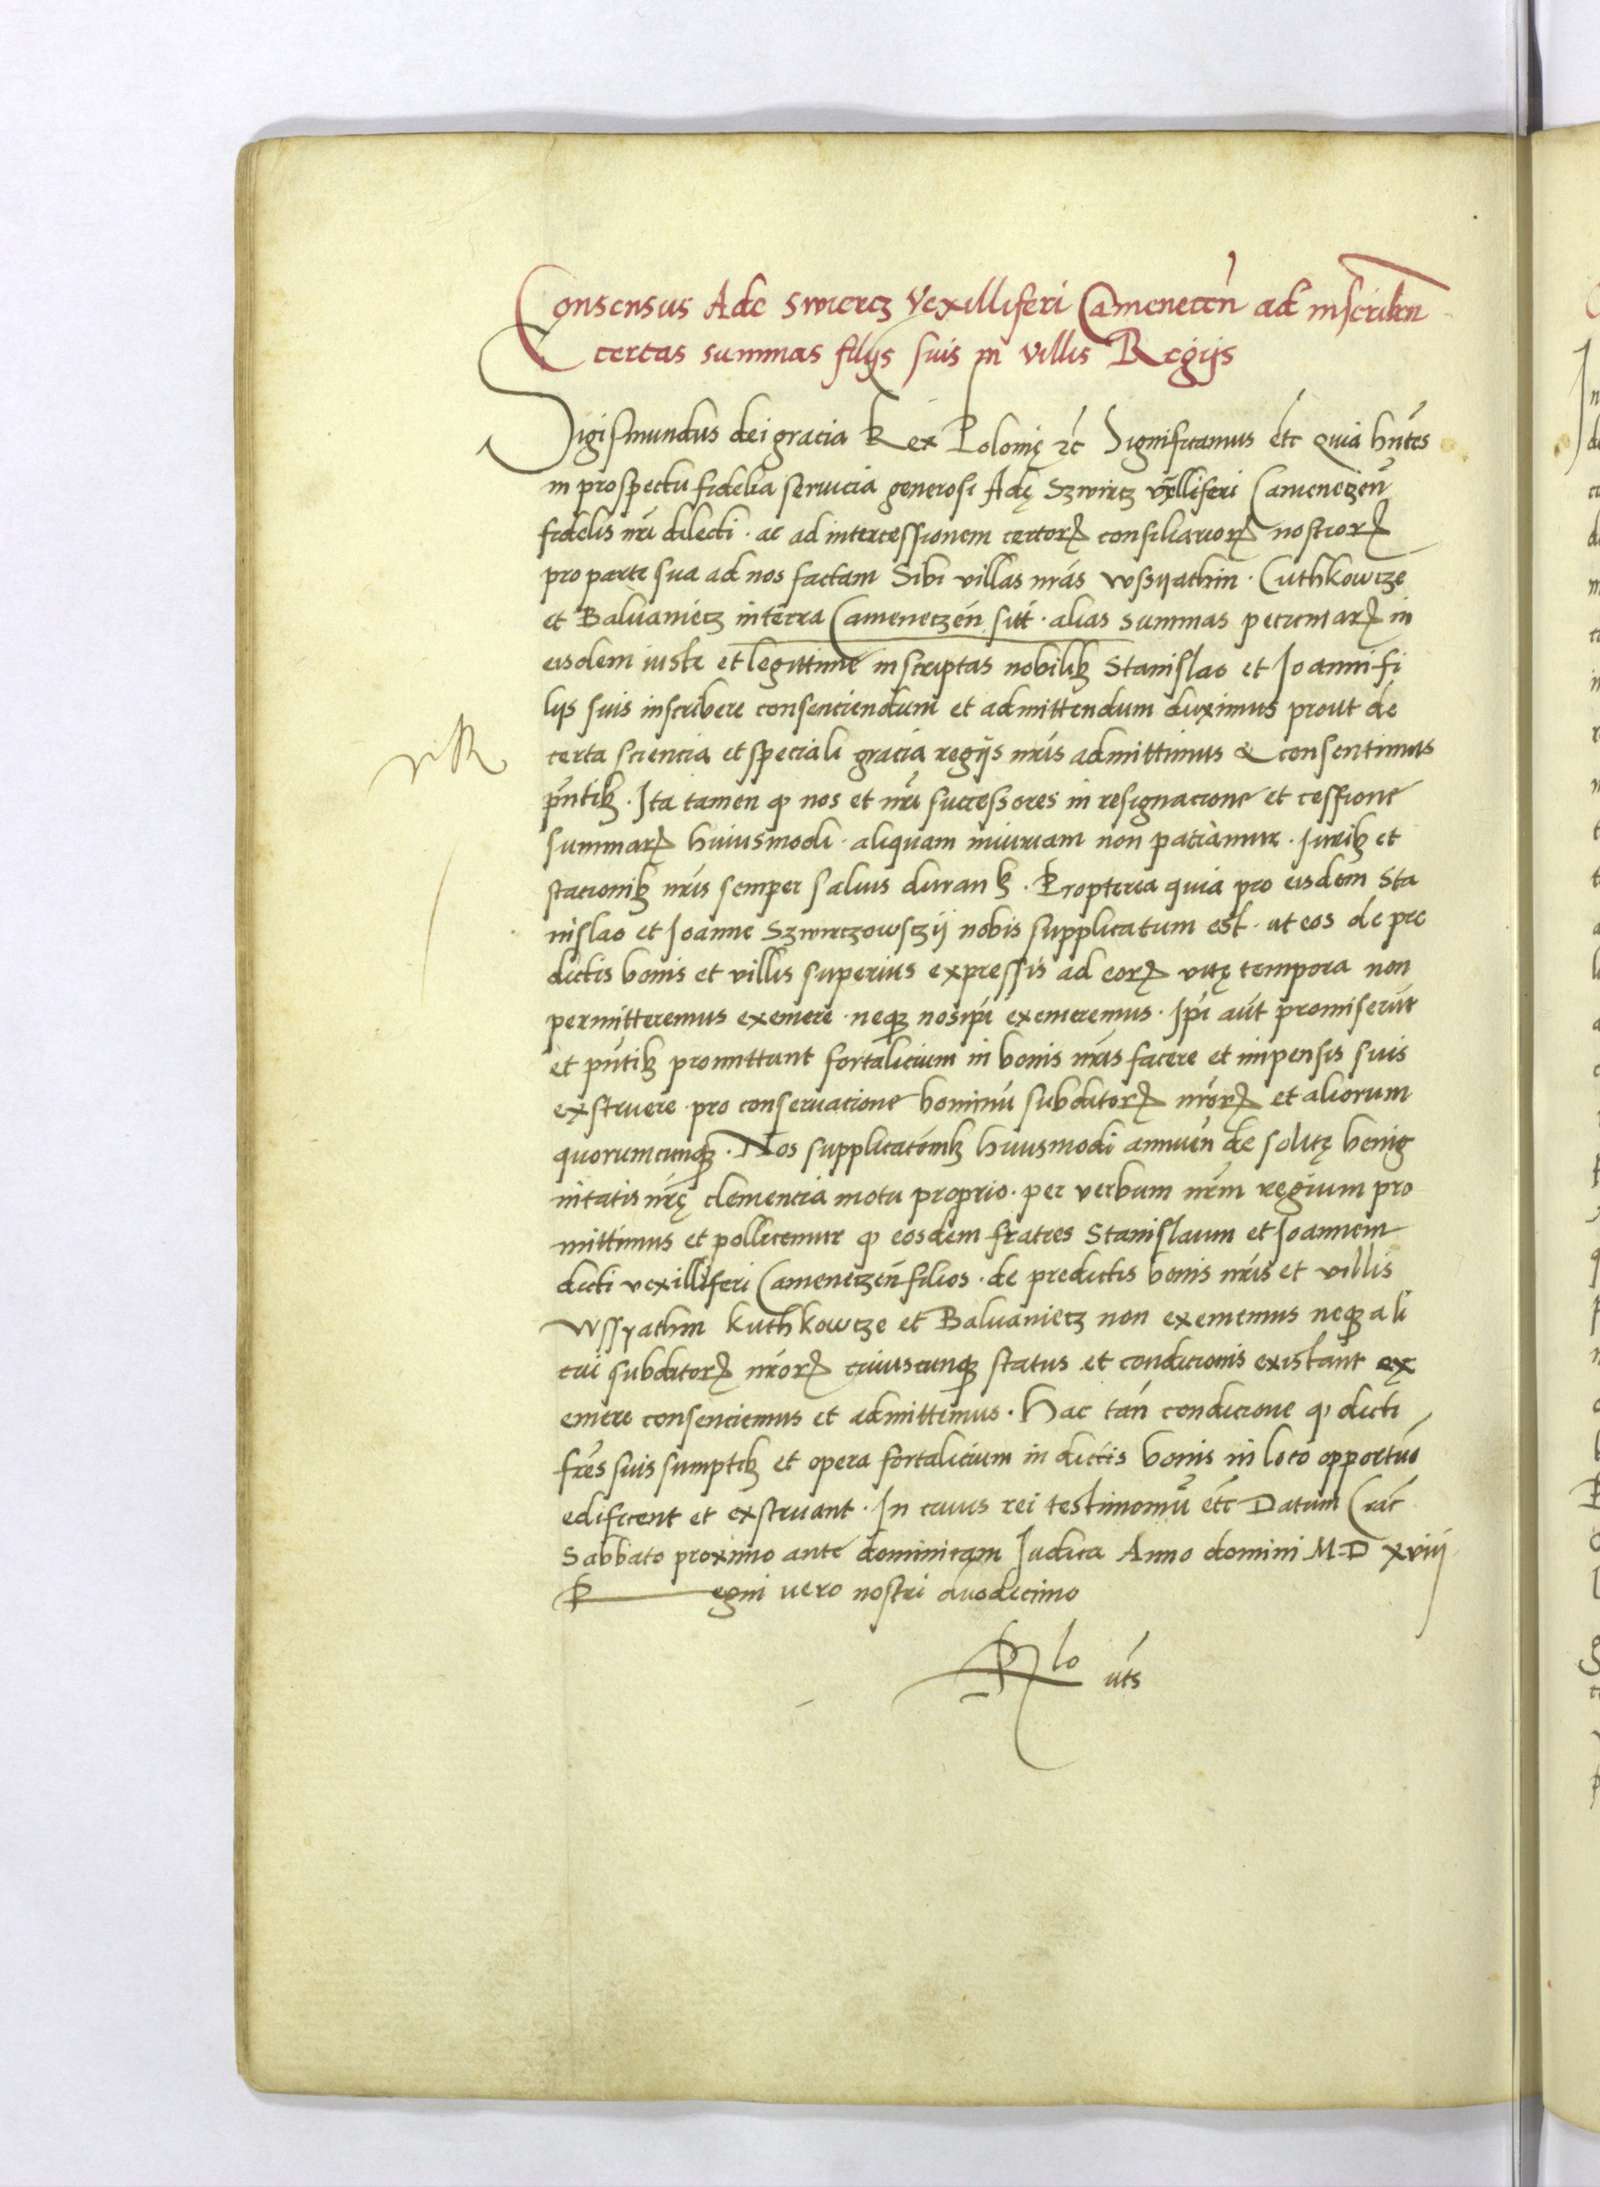 Consensus Ade Swiercz Vexilliferi Camenecen̄ ad inscriben̄
certas summas filijs suis in villis Regijs
Sigismundus dei gracia Rex Polonię ꝛc̄ Significamus etc̄ Quia hn̄tes
in prospectu fidelia seruicia generosi Adę Szwircz vx̄lliferi Cameneczen̄
fidelis nr̄i dilecti · ac ad intercessionem certorꝝ consiliariorꝝ nostrorꝝ
pro parte sua ad nos factam Sibi villas nr̄as Wssyathin · Cuthkowcze
et Balvaniecz in terra Cameneczen̄ sitt̄ · alias summas pecuniarꝝ in
eisdem iuste et legittime inscriptas nobilibꝫ Stanislao et Ioanni fi
lijs suis inscribere consenciendum et admittendum duximus prout de
certa sciencia et speciali gracia regijs nr̄is admittimus & consentimus
pn̄tibꝫ · Ita tamen ꝙ nos et nr̄i successores in resignacione et cessione
summarꝝ huiusmodi · aliquam iniuriam non patiamur · Iuribꝫ et
stacionibꝫ nr̄is semper saluis duranbꝫ · Propterea quia pro eisdem Sta
nislao et Ioanne Szwirczowsczij nobis supplicatum est · ut eos de pre
dictis bonis et villis superius expressis ad eorꝝ vitę tempora non
permitteremus exemere · neqꝫ nosip̄i exemeremus · Ip̄i aūt promiserūt
et pn̄tibꝫ promittunt fortalicium in bonis nr̄is facere et impensis suis
exstruere · pro conseruacione hominū subditorꝝ nr̄orꝝ et aliorum
quorumcunqꝫ · Nos supplicatōnibꝫ huiusmodi annuen̄ de solitę benig
nitatis nr̄ę clemencia motu proprio · per verbum nr̄m regium pro
mittimus et pollicemur ꝙ eosdem fratres Stanislaum et Ioannem
dicti vexilliferi Cameneczen̄ filios · de predictis bonis nr̄is et villis
Wssyathin Kuthkowcze et Balvaniecz non exememus neqꝫ ali
cui subditorꝝ nr̄orꝝ cuiuscunqꝫ status et condicionis existant ex
emere consenciemus et admittimus · Hac tan̄ condicione ꝙ dicti
fr̄es suis sumptibꝫ et opera fortalicium in dictis bonis in loco opportūo
edificent et exstruant · In cuius rei testimoniū etc̄ Datum Crac̄
Sabbato proximo ante dominicam Iudica Anno domini M·D xviij
Regni vero nostri duodecimo
Rlo uts̄